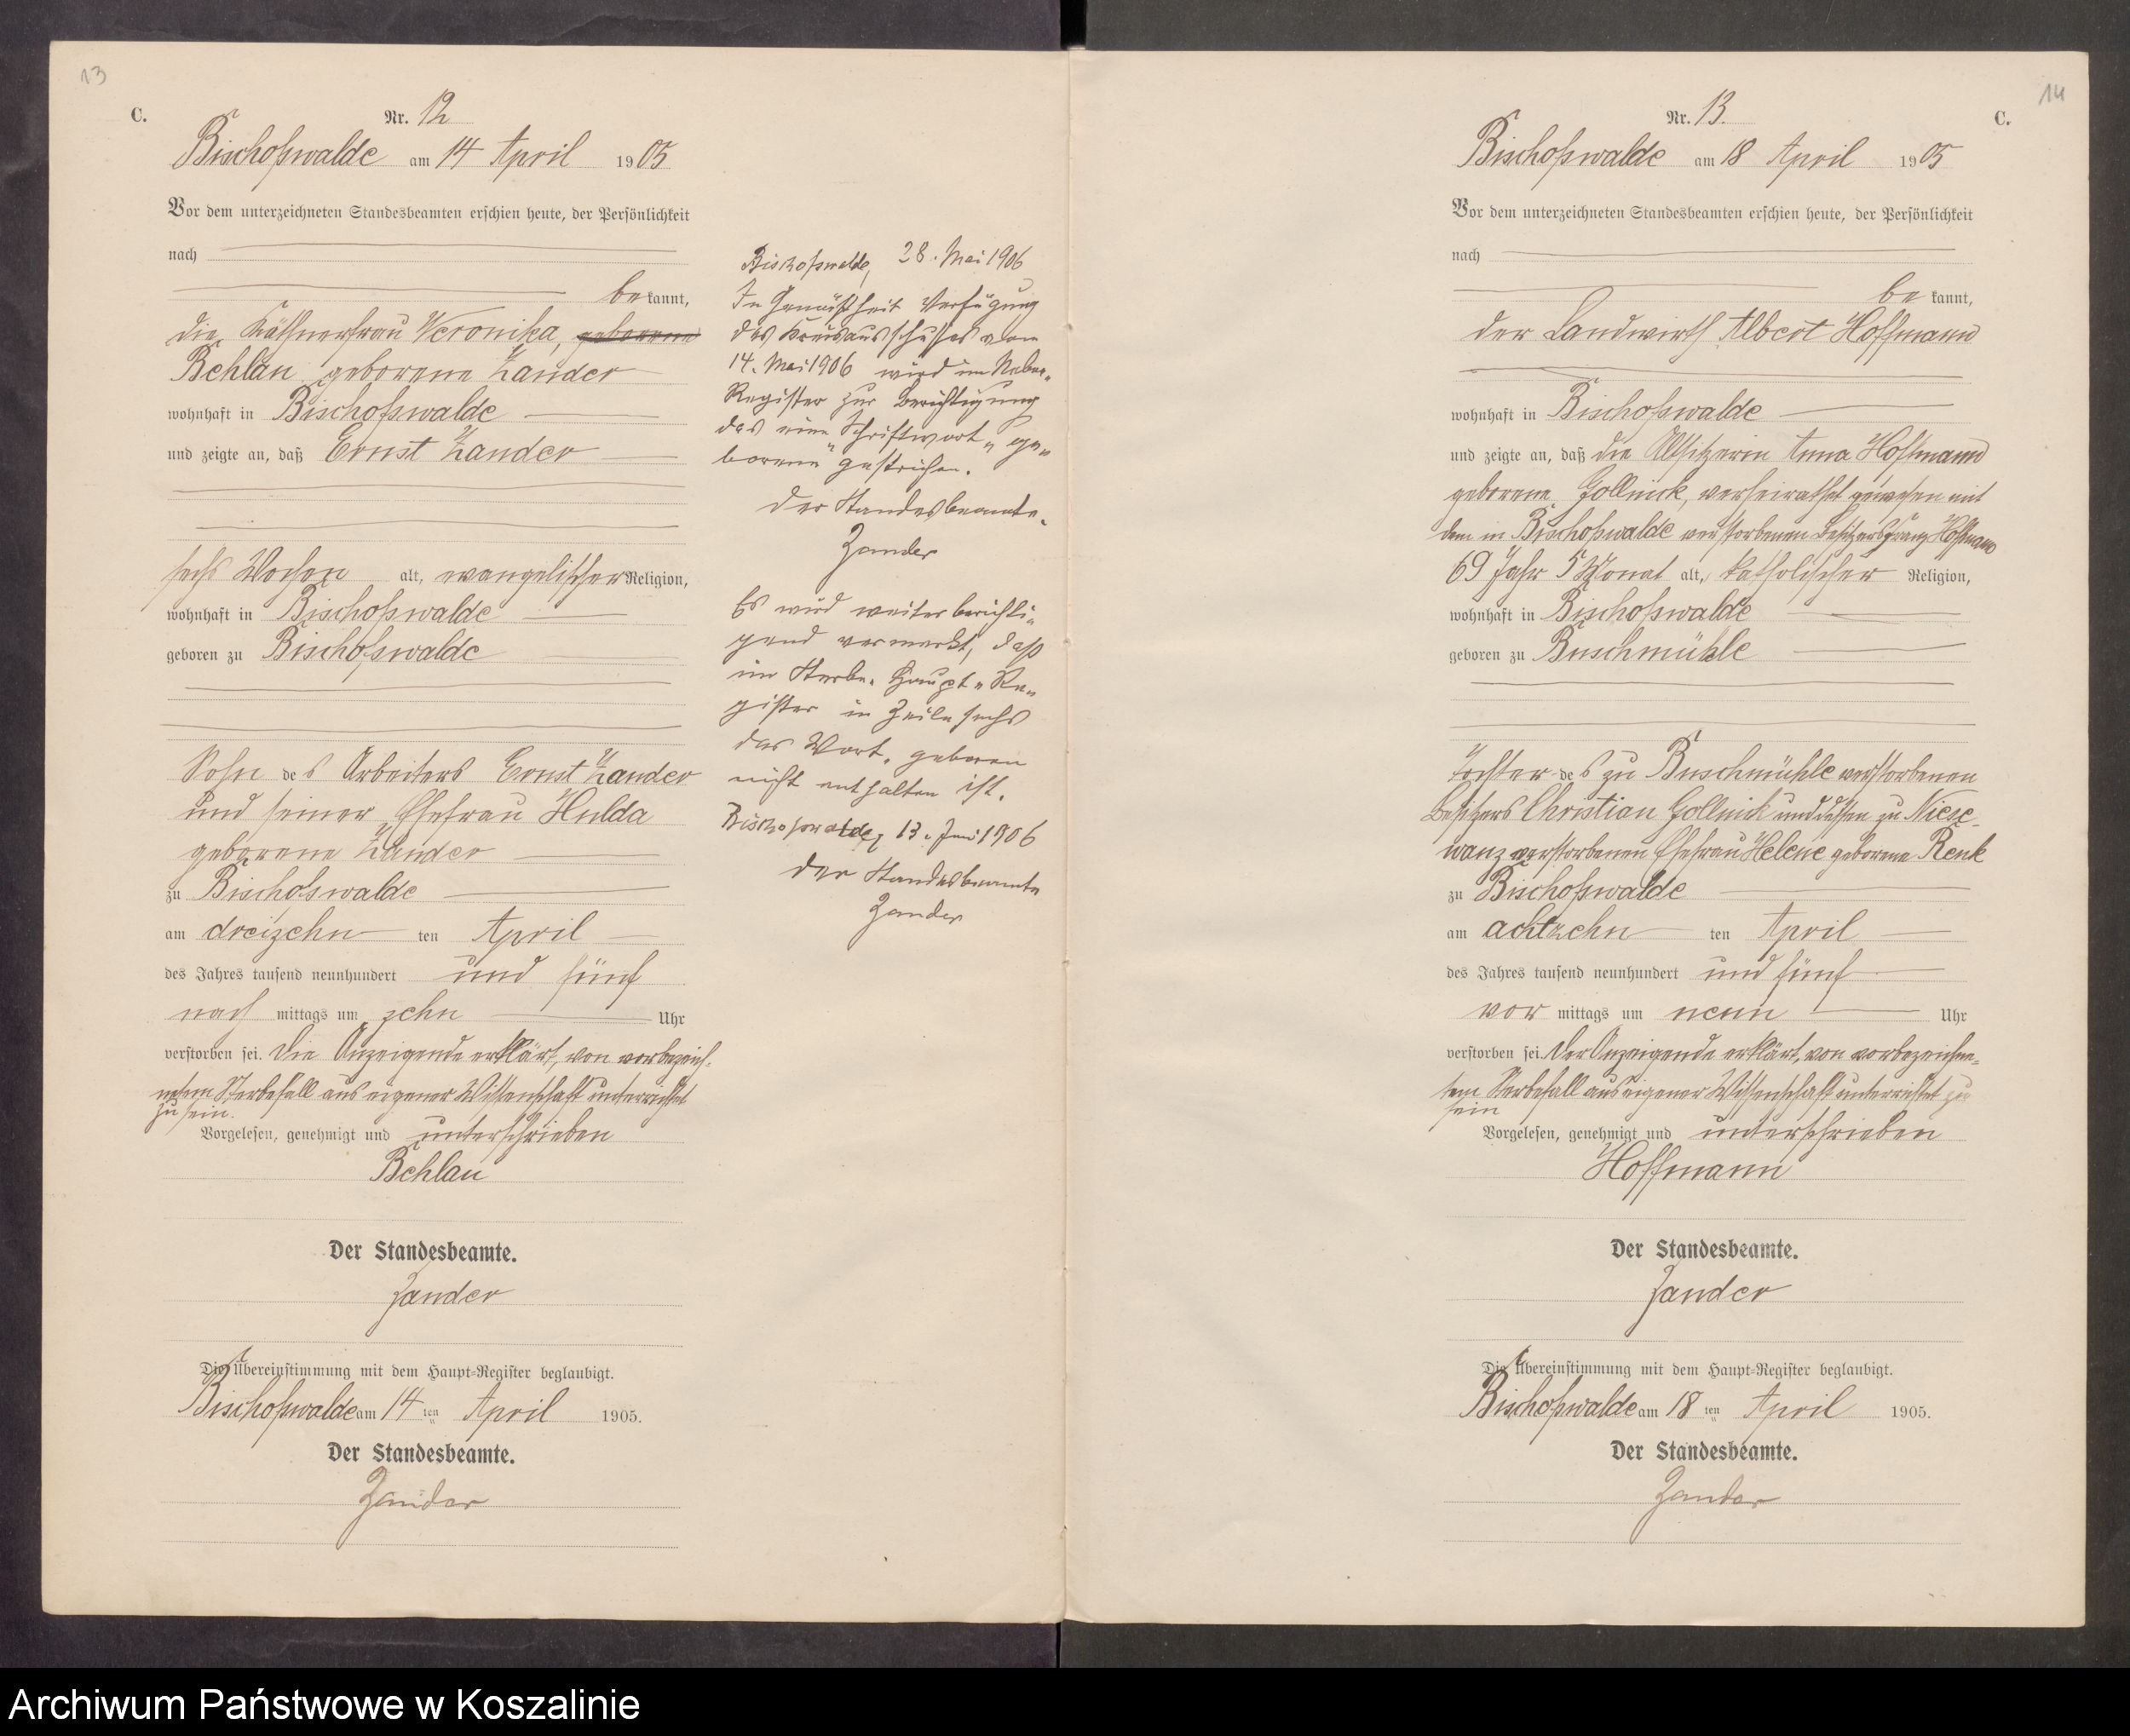 13
C.
Nr. 12
Bischofswalde am 14 April 1905
Vor dem unterzeichneten Standesbeamten erschien heute, der Persönlichkeit
nach
be kannt,
die Käthnerfrau Veronika, geborene
Behlau geborene Zander
wohnhaft in Bischofswalde
und zeigte an, daß Ernst Zander
sechs Wochen alt, evangelischer Religion,
wohnhaft in Bischofswalde
geboren zu Bischofswalde
Sohn des Arbeiters Ernst Zander
und seiner Ehefrau Hulda
geborene Zander
zu Bischofswalde
am dreizehn ten April
des Jahres tausend neunhundert und fünf
nach mittags um zehn Uhr
verstorben sei. Die Anzeigende erklärt, von vorbezeich-
netem Sterbefall aus eigener Wissenschaft unterrichtet
zu sein.
Vorgelesen, genehmigt und unterschrieben
Behlau
Der Standesbeamte.
Zander
Die Übereinstimmung mit dem Haupt-Register beglaubigt.
Bischofswalde am 14 ten April 1905.
Der Standesbeamte.
Zander
Bischofswalde, 28. Mai 1906
In Gemäßheit Verfügung
des Kreisausschusses vom
14. Mai 1906 wird im Neben-
Register zur Berichtigung
das eine Schriftwort "ge-
borene" gestrichen.
Der Standesbeamte.
Zander
Es wird weiter berichti-
gend vermerkt, daß
im Sterbe-Haupt-Re-
gister in Zeile sechs
das Wort, geboren
nicht enthalten ist.
Bischofswalde, 13. Juni 1906
Der Standesbeamte
Zander
14
C.
Nr. 13.
Bischofswalde am 18 April 1905
Vor dem unterzeichneten Standesbeamten erschien heute, der Persönlichkeit
nach
be kannt,
der Landwirth Albert Hoffmann
wohnhaft in Bischofswalde
und zeigte an, daß die Altsitzerin Anna Hoffmann
geborene Gollnick, verheirathet gewesen mit
dem in Bischofswalde verstorbenen Besitzers Franz Hoffmann
69 Jahr 5 Monat alt, katholischer Religion,
wohnhaft in Bischofswalde
geboren zu Buschmühle
Tochter des zu Buschmühle verstorbenen
Besitzers Christian Gollnick und dessen zu Niese-
wanz verstorbenen Ehefrau Helene geborene Renk
zu Bischofswalde
am achtzehn ten April
des Jahres tausend neunhundert und fünf
vor mittags um neun Uhr
verstorben sei. Der Anzeigende erklärt, von vorbezeichne-
tem Sterbefall aus eigener Wissenschaft unterrichtet zu
sein
Vorgelesen, genehmigt und unterschrieben
Hoffmann
Der Standesbeamte.
Zander
Die Übereinstimmung mit dem Haupt-Register beglaubigt.
Bischofswalde am 18 ten April 1905.
Der Standesbeamte.
Zander
Archiwum Państwowe w Koszalinie